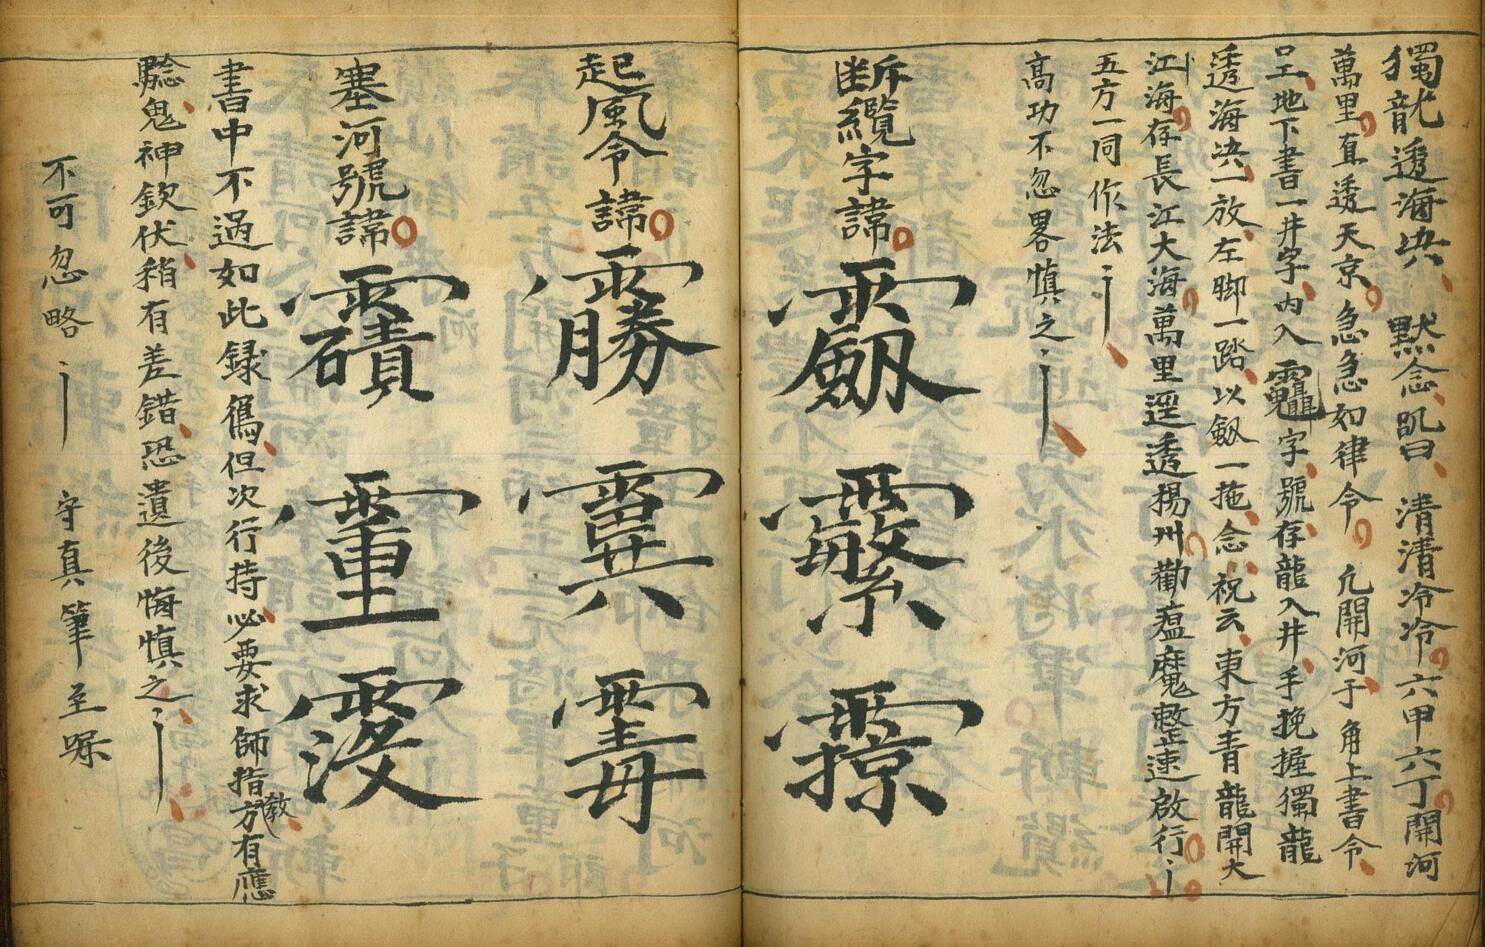 獨龍透海决 默念咒曰 清清冷冷六甲六丁開河
萬里直透天京急急如律令 凢開河于角上書令
呈地下書一井字内入字號存龍入井手挽握獨龍
透海决一放左脚一踏以劔一拖念祝云東方青龍開大
江海存長江大海萬里逕透揚州勸瘟魔整速啟行
五方一同作法
高功不忽畧慎之
断纜字諱
起風令諱
塞河號諱
書中不過如此録寫但次行持必要求師指教方有應
驗鬼神欽伏稍有差錯恐遺後悔慎之
不可忽略 守真筆至囑